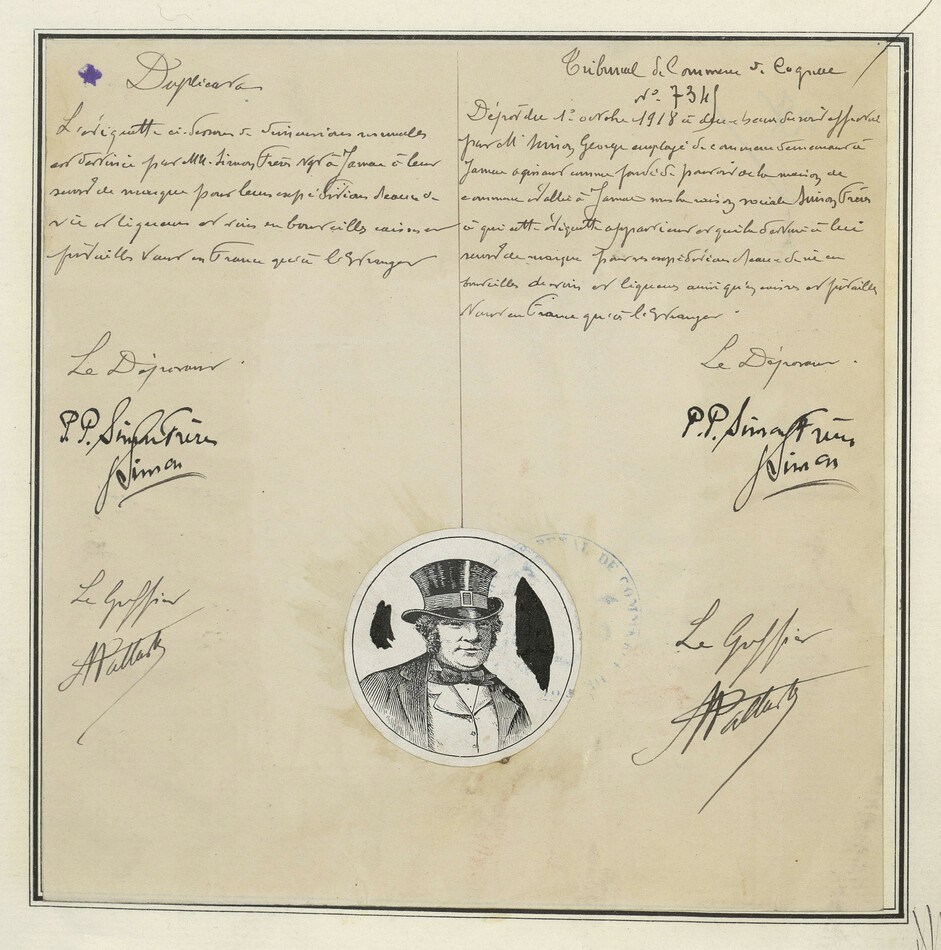 Duplicata
L'étiquette ci-dessous de dimensions variables
est destinée par MM. Simon Frères Ngts à Jarnac à leur
servir de marque pour leurs expéditions d'eaux de
vie et liqueurs et vins en bouteilles caisses et
futailles tant en France qu'à l'Etranger
Le Déposant
P.P. Simon Frères
GSimon
Le Greffier
Tribunal de Commerce de Cognac
N° 7345
Dépôt du 1er octobre 1918 à deux heures du soir effectué
par M Simon George employé de commerce demeurant à
Jarnac agissant comme fondé de pouvoir de la maison de
commerce établie à Jarnac sous la raison sociale Simon Frères
à qui cette étiquette appartient et qui la destine à lui
servir de marque pour ses expéditions d'eaux de vie en
bouteilles de vins et liqueurs ainsi qu'en caisses et futailles
tant en France qu'à l'Etranger.
Le Déposant.
P.P. Simon Frères
GSimon
Le Greffier
TRIBUNAL DE COMMERCE